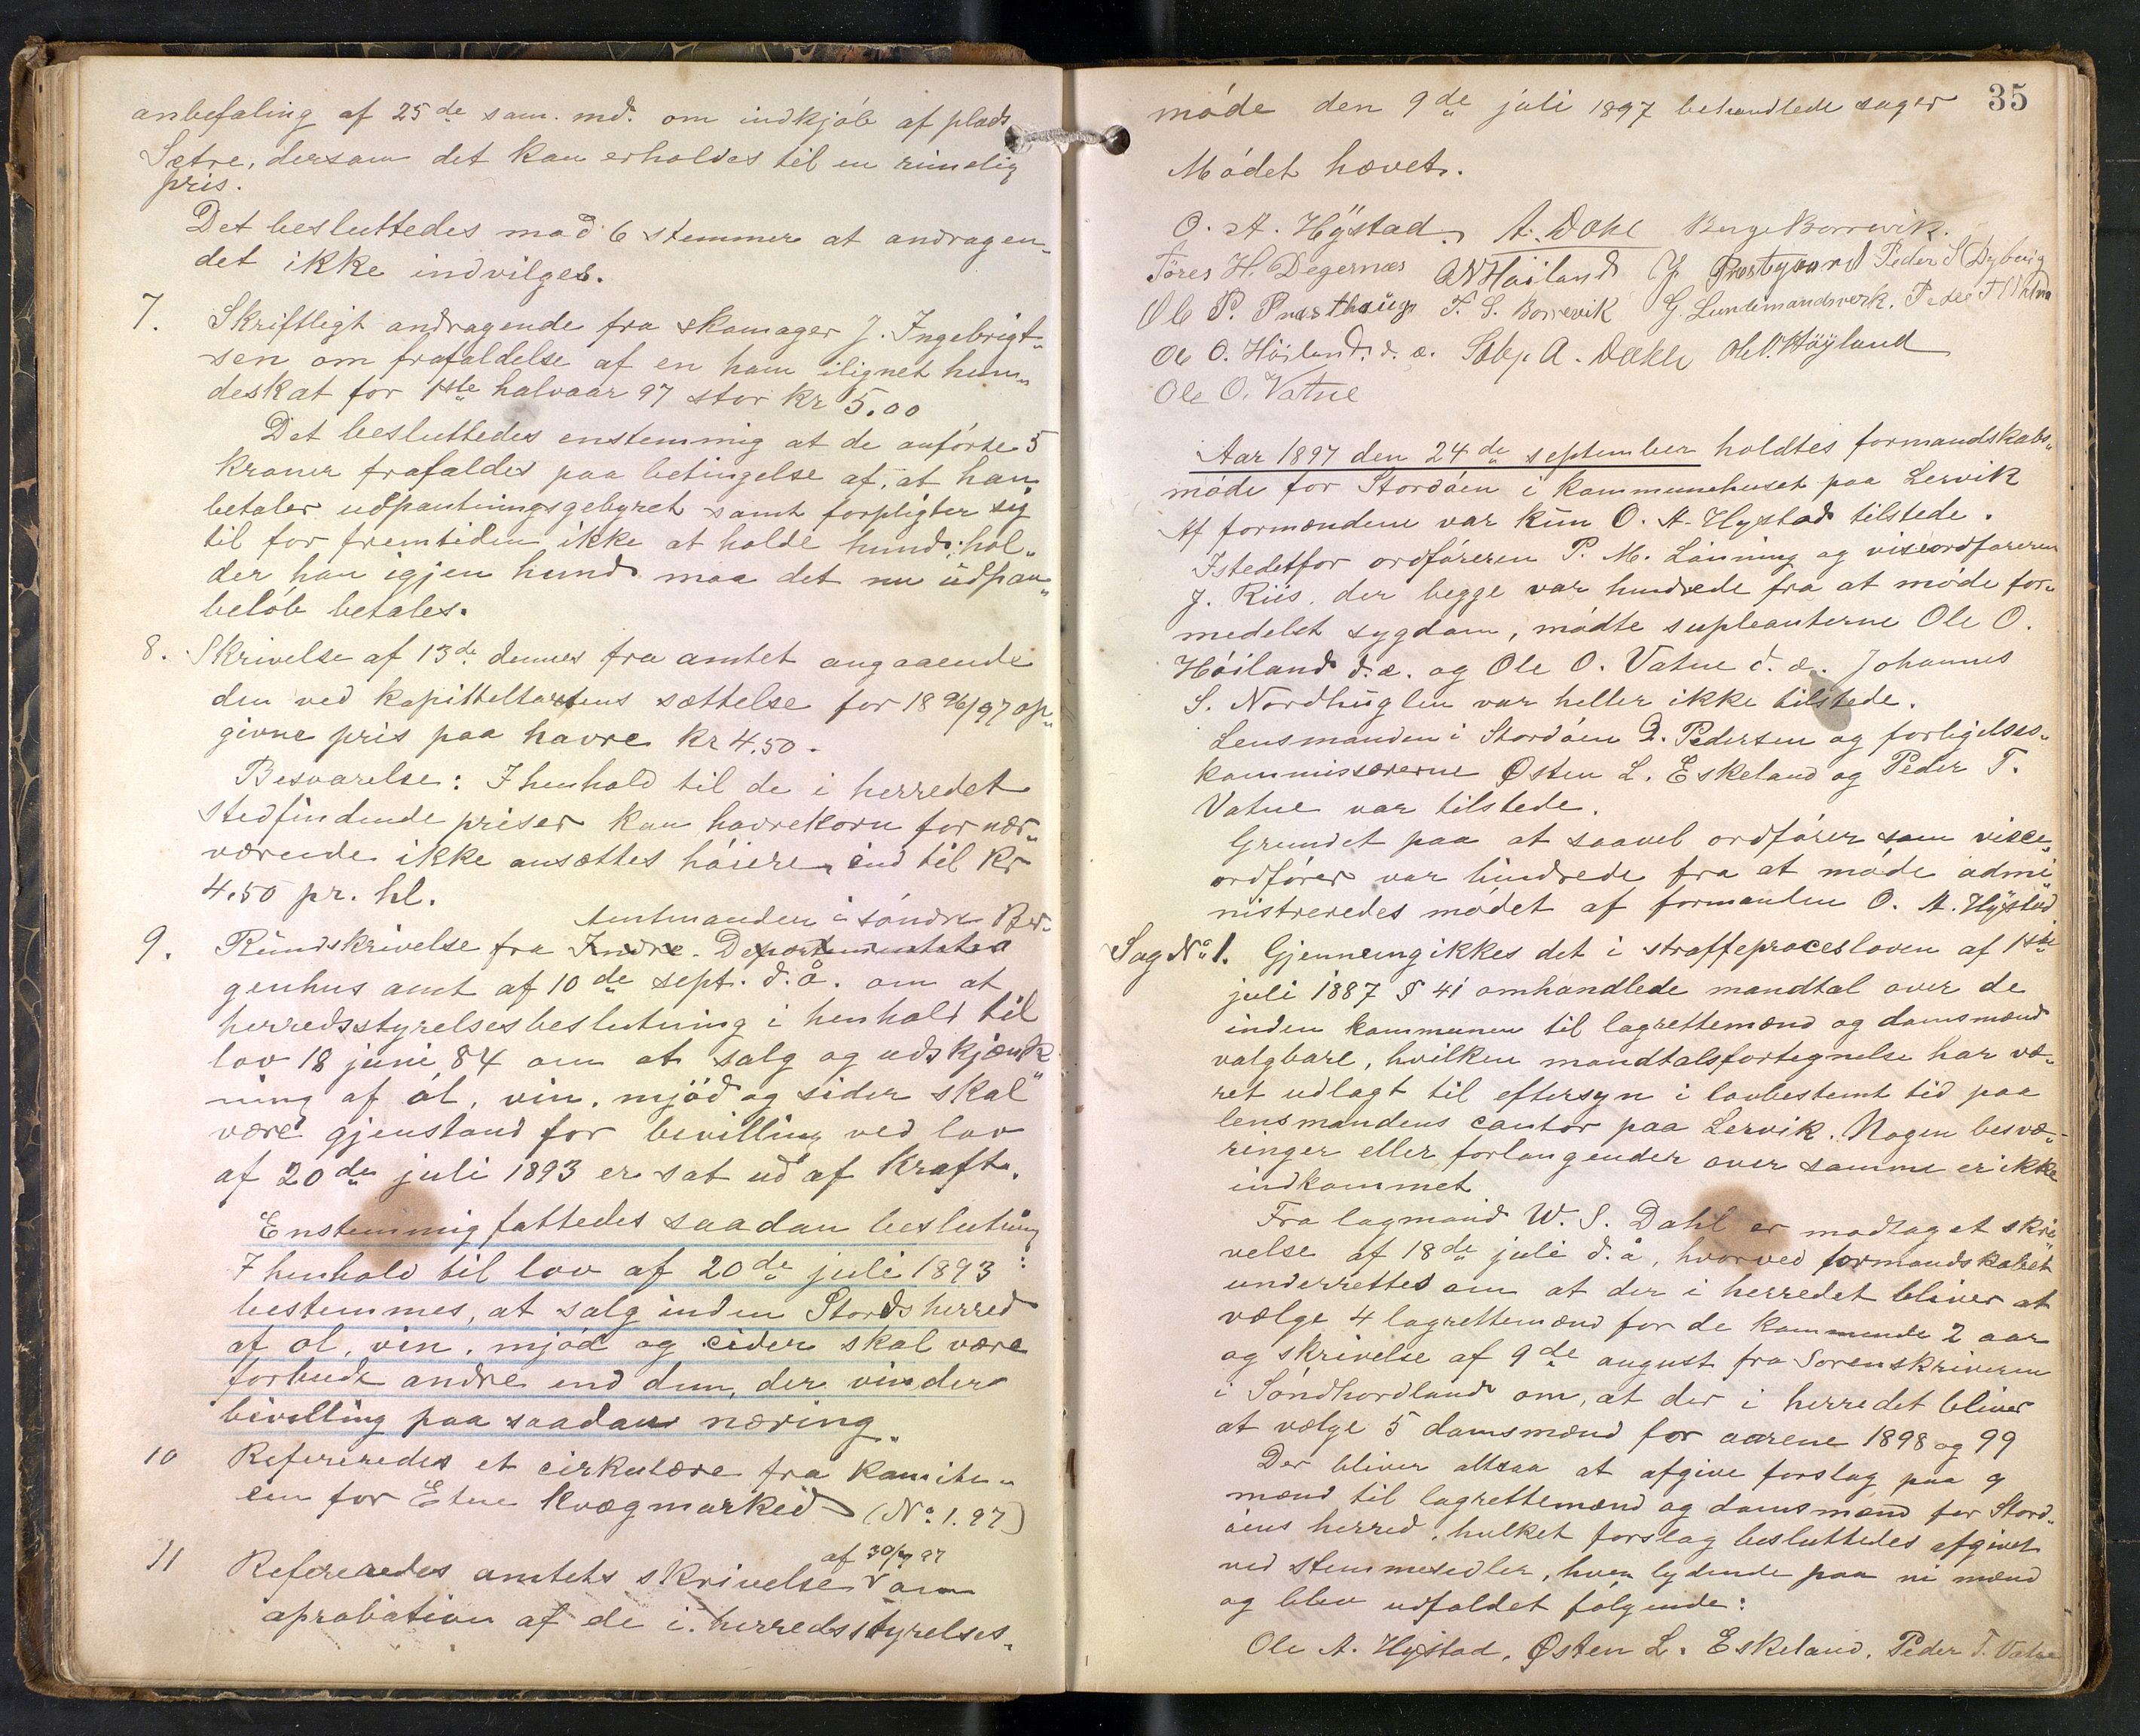 anbefaling af 25de sam. md. om indkjöb af plads
Sætre, dersom det kan erholdes til en rimelig
pris.
Det besluttedes mod 6 stemmer at andragen-
det ikke indvilges.
7. Skriftligt andragende fra skomager J. Ingebrigt-
sen om frafaldelse af en ham ilignet hun-
deskat for 1ste halvaar 97 stor Kr 5.00
Det besluttedes enstemmig at de anförte 5
kroner frafaldes paa betingelse af, at han
betaler udpantningsgebyret samt forpligter sig
til for fremtiden ikke at holde hund; hol-
der han igjen hund maa det nu udpan-
beløb betales.
8. Skrivelse af 13de dennes fra amtet angaaende
den ved kapitteltaxtens sættelse for 18 96/97 op-
givne pris paa havre kr 4.50.
Besvarelse: I henhold til de i herredet
stedfindende priser kan havrekorn for nær-
værende ikke ansættes höiere end til Kr
4.50 pr. hl.
Amtmanden i söndre Ber-
9. Rundskrivelse fra Indre. Departementets
genhus amt af 10de sept. d.å. om at
herredsstyrelsesbeslutning i henhold til
lov 18 juni 84 om at salg og udskjænk-
ning af öl, vin, mjöd og sider skal
være gjenstand for bevilling ved lov
af 20de juli 1893 er sat ud af kraft.
Enstemmig fattedes saadan beslutning:
I henhold til lov af 20de juli 1893
bestemmes, at salg inden Stords herred
af öl, vin, mjöd og cider skal være
forbudt andre end dem, der vinder
bevilling paa saadan næring.
10 Refereredes et cirkulære fra komite-
en for Etne Kvægmarked (No 1. 97)
af 30/7 97
11 Refereredes amtets skrivelse om
aprobation af de i herredsstyrelses-
35
möde den 9de juli 1897 behandlede sager
Mödet hævet.
O. A. Hÿstad. A. Dahl Berge Borrevik.
Töres H. Degernes AN Höiland J Prestgaard Peder S Dyb­vig
Ole P. Prasthaug T. S. Borrevik G. Lundemandsverk. Peder T Vatna
Ole O. Höiland. d. æ. A. Dahle Ole P. Höÿland
Ole O. Vatne
Aar 1897 den 24de september holdtes formandskabs-
möde for Stordöen i kommunehuset paa Lervik
Af formændene var kun O. A. Hystad tilstede.
Istedetfor ordföreren P. M. Lönning og viseordföreren
J. Riis, der begge var hindrede fra at möde for-
medelst sygdom, mödte supleanterne Ole O.
Höiland d.æ. og Ole O. Vatne d. æ. Johannes
S. Nordhuglen var heller ikke tilstede.
Lensmanden i Stordöen D. Pedersen og forligelses-
kommissærerne Østen L. Eskeland og Peder T.
Vatne var tilstede.
Grundet paa at saavel ordförer som visce-
ordförer var hindrede fra at möde admi-
nistreredes mödet af formanden O. A. Hÿstad
Sag No 1. Gjennemgikkes det i straffeprocesloven af 1ste
juli 1887 § 41 omhandlede mandtal over de
inden kommunen til lagrettemænd og domsmænd
valgbare, hvilken mandtalsfortegnelse har væ-
ret udlagt til eftersyn i lovbestemt tid paa
lensmandens contor paa Lervik. Nogen besvæ-
ringer eller forlangender over samme er ikke
indkommet
Fra lagmand W. S. Dahl er modtaget skri-
velse af 18de juli d.å, hvorved formandskabet
underrettes om at der i herredet bliver at
vælge 4 lagrettemænd for de kommende 2 aar
og skrivelse af 9de august fra Sorenskriveren
i Söndhordland om, at der i herredet bliver
at vælge 5 domsmænd for aarene 1898 og 99
Der bliver altsaa at afgive forslag paa 9
mænd til lagrettemænd og domsmænd for Stord-
öens herred, hvilket forslag besluttedes afgivet
ved stemmesedler, hver lydende paa ni mænd
og blev udfaldet fölgende:
Ole A. Hystad, Østen L. Eskeland, Peder T. Vatne